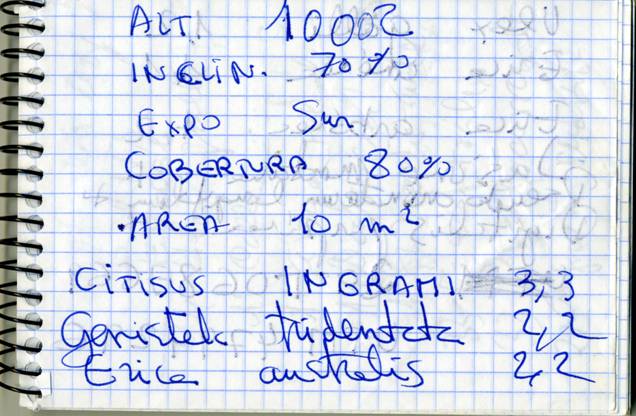 ALT. 1000 m
INCLIN. 70%
EXPO Sur
COBERTURA 80%
.AREA 10 m²
CITISUS INGRAMI 3,3
Genistela tridentata 2,2
Erica australis 2,2